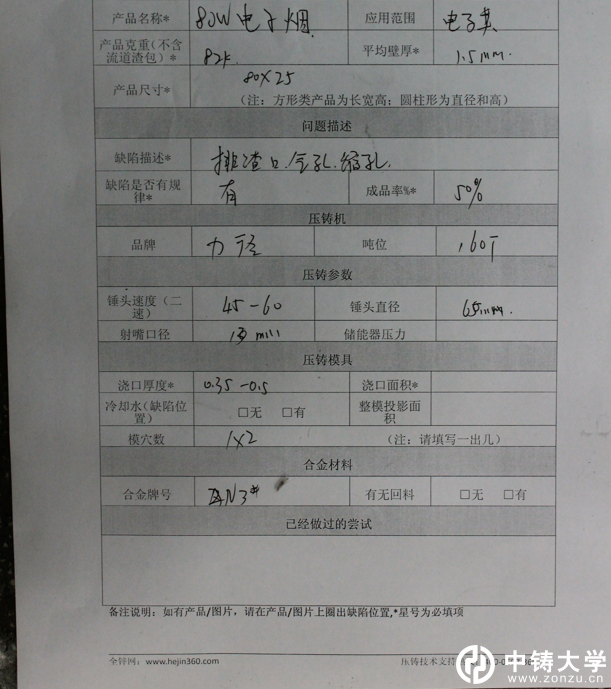 产品名称* 80W电子烟 应用范围 电子类
产品克重(不含流道渣包)* 82g 平均壁厚* 1.5mm.
产品尺寸* 80X25
（注：方形类产品为长宽高；圆柱形为直径和高）
问题描述
缺陷描述* 排渣口.气孔.缩孔.
缺陷是否有规律* 有 成品率%* 50%
压铸机
品牌 力 吨位 160T
压铸参数
锤头速度（二速） 45-60 锤头直径 60mm.
射嘴口径 储能器压力
压铸模具
浇口厚度* 0.35-0.5 浇口面积*
冷却水(缺陷位置) □无 □有 整模投影面积
模穴数 1X2 （注：请填写一出几）
合金材料
合金牌号 3# 有无回料 □无 □有
已经做过的尝试
备注说明：如有产品/图片，请在产品/图片上圈出缺陷位置,*星号为必填项
全锌网：www.hejin360.com 压铸技术支持
中铸大学
www.zonzu.cn